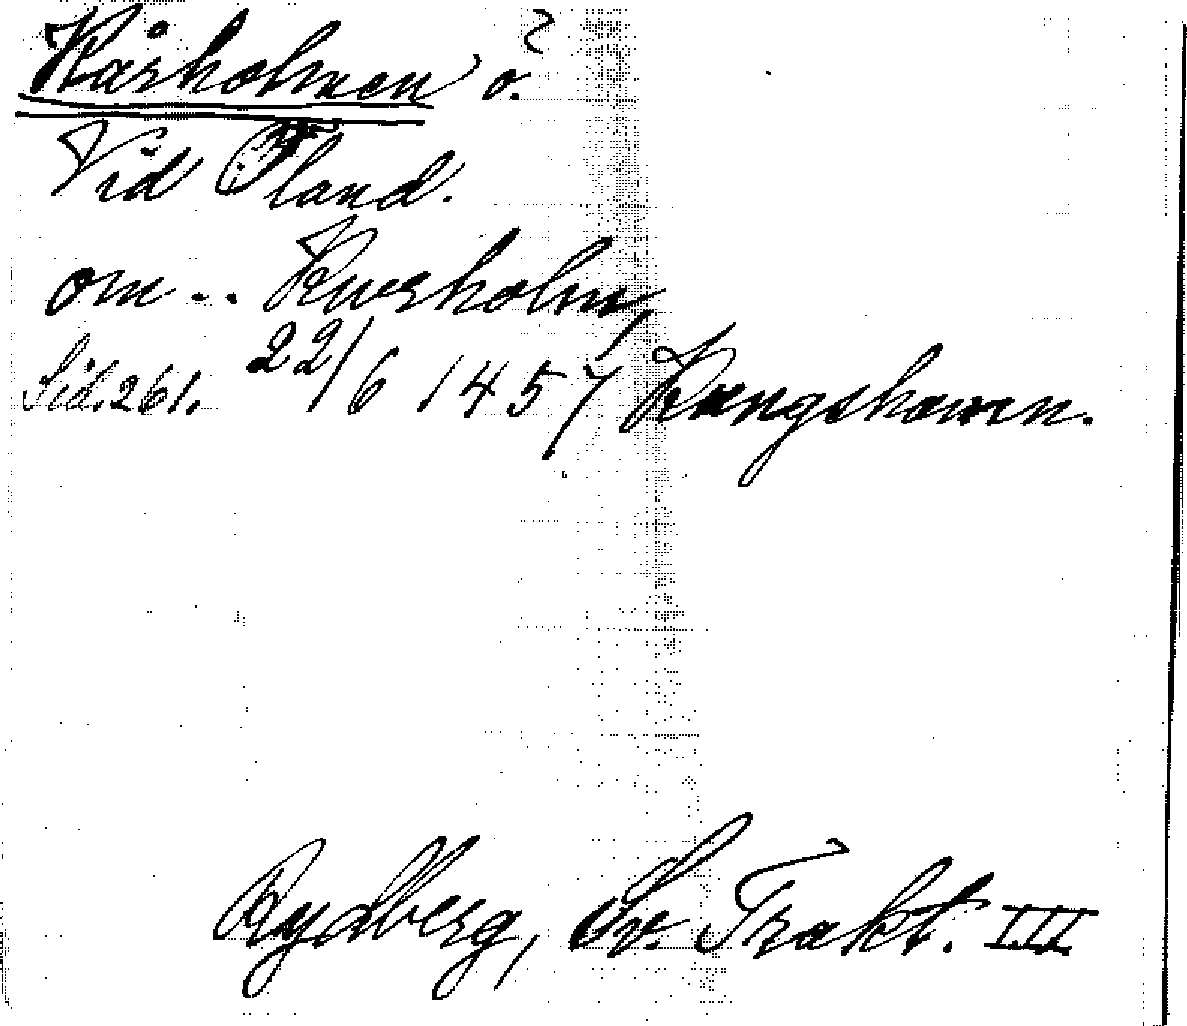 Kårholmen ö. ?
Vid Öland.
om - . Kwerholm,
Sid. 261. 22/6 1457 Kungshamn.
Rydberg, Sv. Trakt. III